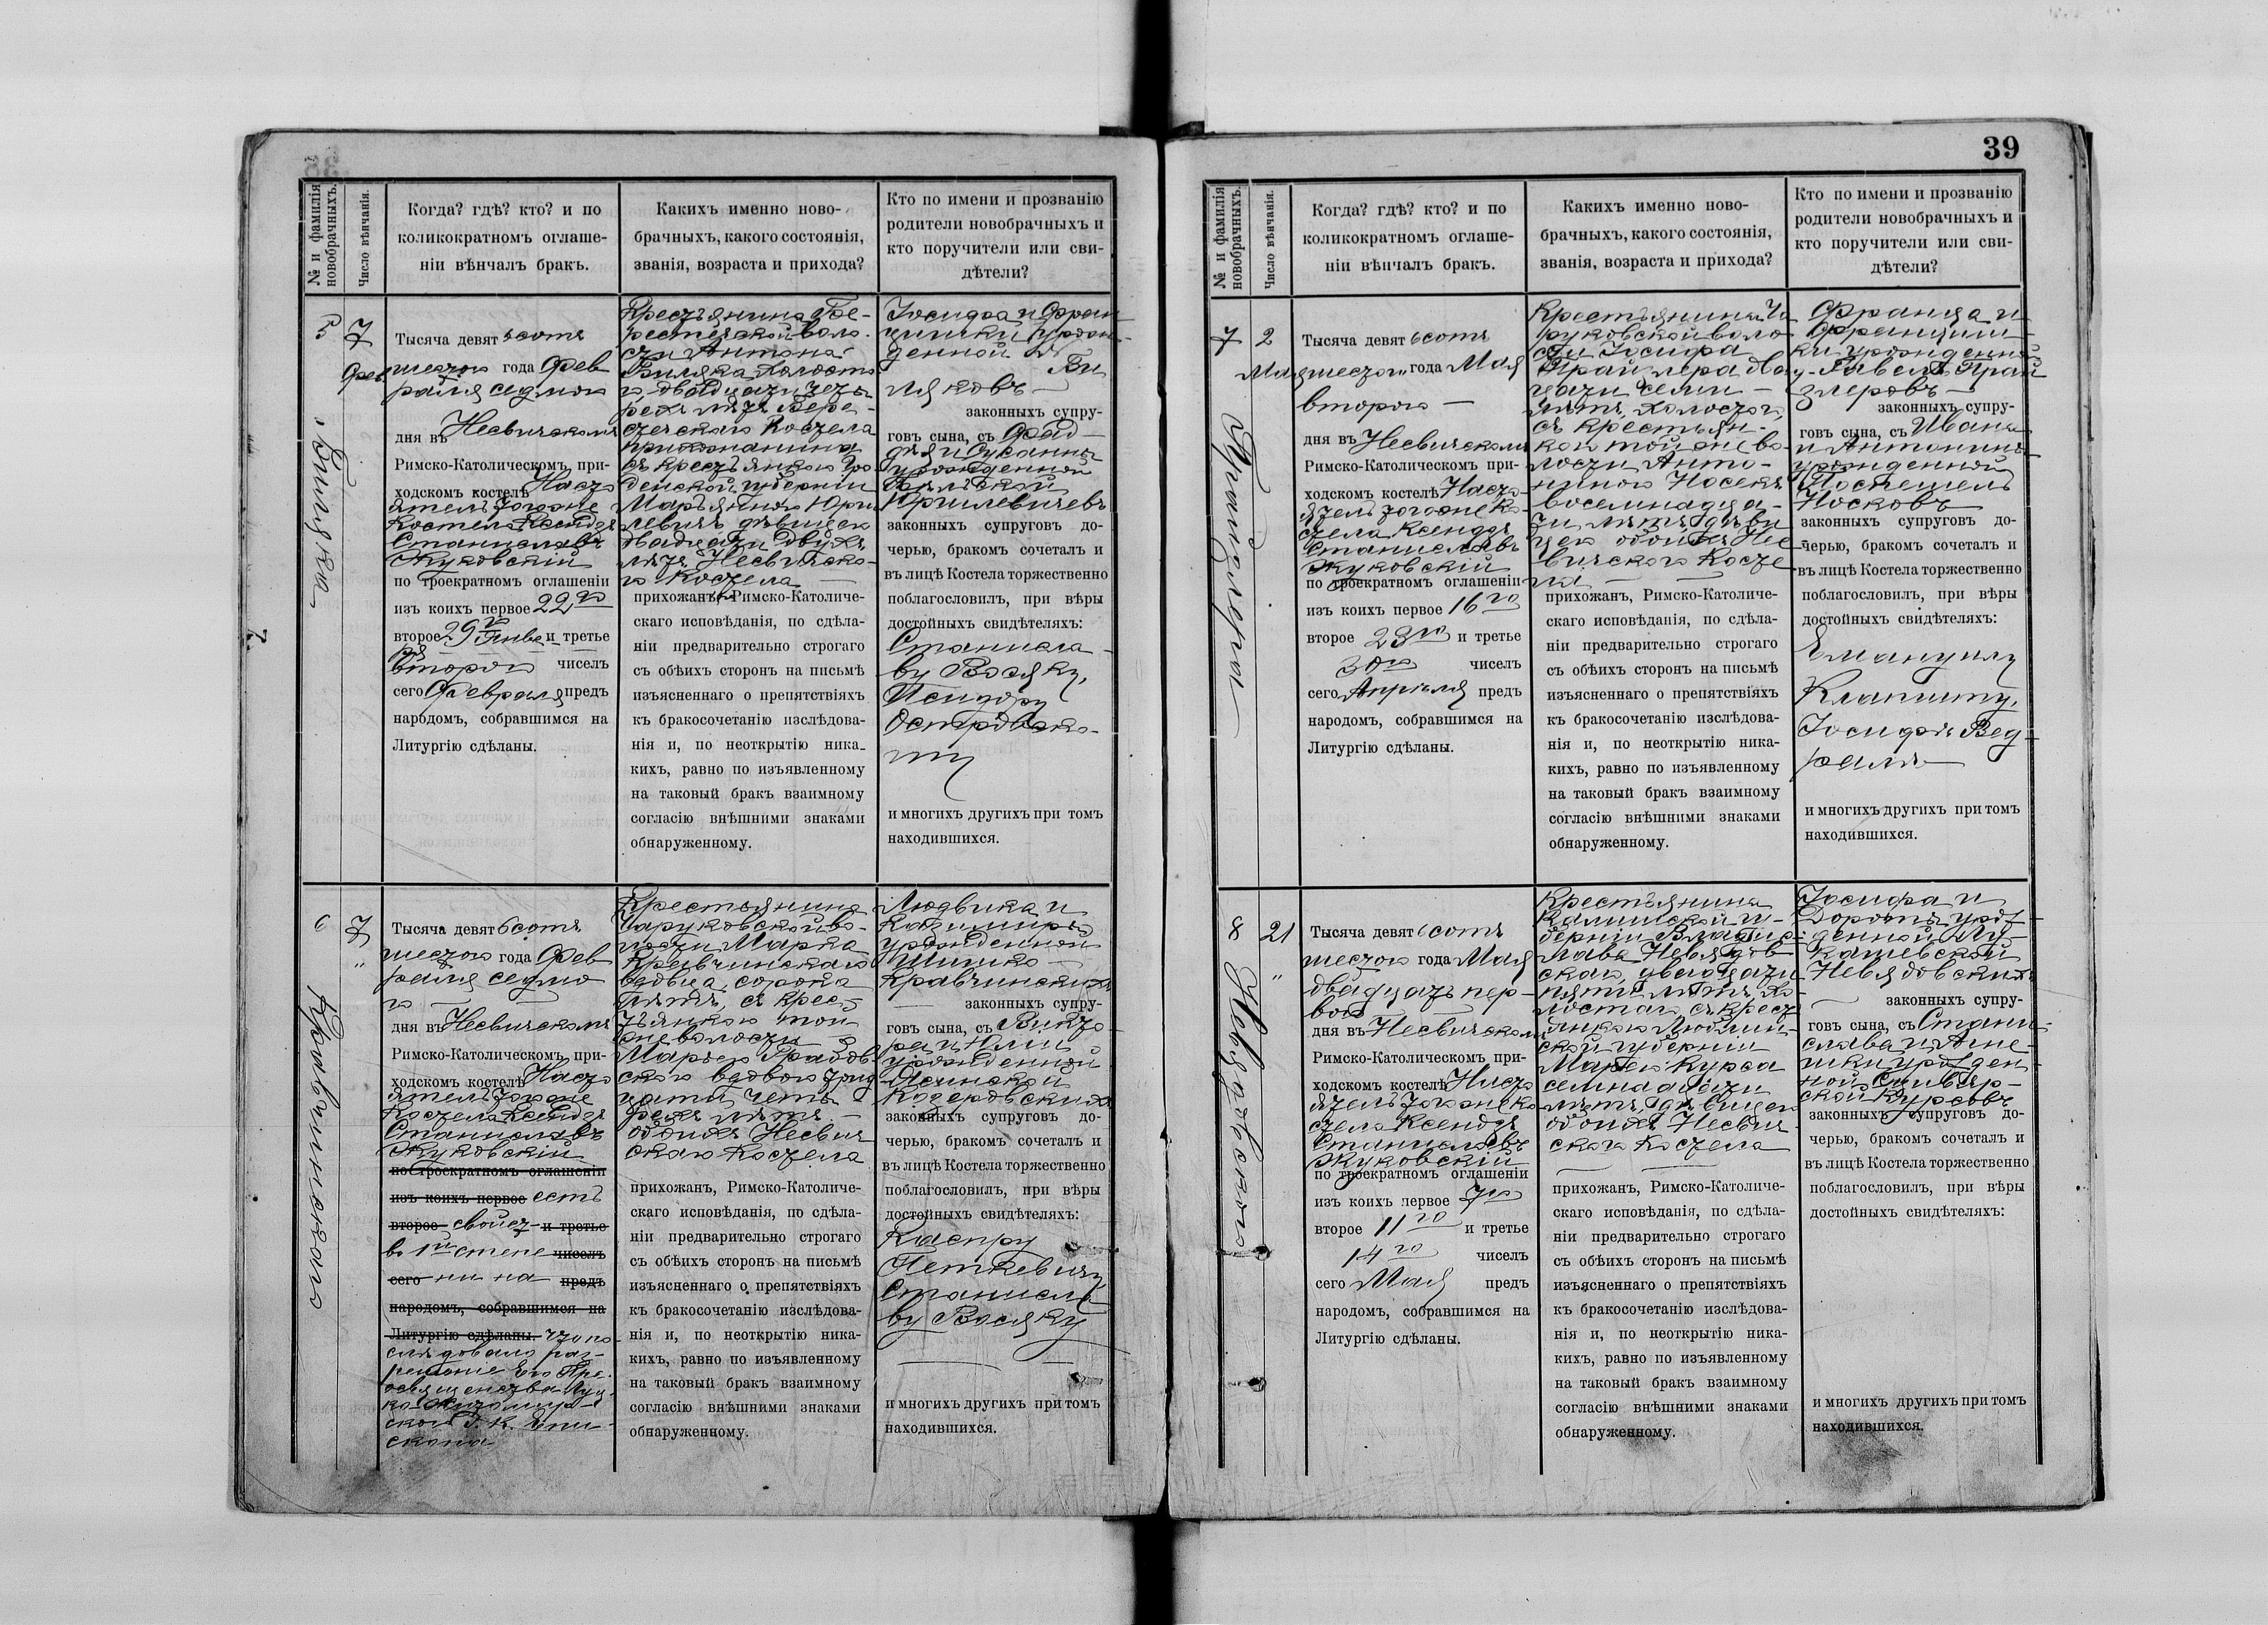 39
№ и фамилія новобрачныхъ.
Число вѣнчанія.
Когда? гдѣ? кто? и по
коликократномъ оглаше-
ніи вѣнчалъ бракъ.
Какихъ именно ново-
брачныхъ, какого состоянія,
званія, возраста и прихода?
Кто по имени и прозванію
родители новобрачныхъ и
кто поручители или сви-
дѣтели?
5
7
Фев
Тысяча девятьсотъ
шестого года Фев
раля седмого
дня въ Несвичскомъ
Римско-Католическомъ при-
ходскомъ костелѣ Насто
ятель тогоже
Костела Ксендзъ
Станиславъ
Жуковскій
по троекратномъ оглашеніи
изъ коихъ первое 22го
второе 29го Янва и третье
ря
второго чиселъ
сего Февраля предъ
народомъ, собравшимся на
Литургію сдѣланы.
Крестьянина Бе-
рестечской воло-
сти Антона
Биляка холосто
го двадцати четы
рехъ лѣтъ Бере-
стечского Костела
прихожанина
съ крестьянкою Гро
денской губерніи
Марьяною Юри
левичъ дѣвицею
двадцати двухъ
лѣтъ Несвичско-
го Костела
прихожанъ, Римско-Католиче-
скаго исповѣданія, по сдѣла-
ніи предварительно строгаго
съ обѣихъ сторонъ на письмѣ
изъясненнаго о препятствіяхъ
къ бракосочетанію изслѣдова-
нія и, по неоткрытію ника-
кихъ, равно по изъявленному
на таковый бракъ взаимному
согласію внѣшними знаками
обнаруженному.
Іосифа и Фран
цишки урож-
денной
Би
ляковъ
законныхъ супру-
говъ сына, съ Фад-
дѣя и Сузанны
урожденной
Юрилевичевъ
законныхъ супруговъ до-
черью, бракомъ сочеталъ и
въ лицѣ Костела торжественно
поблагословилъ, при вѣры
достойныхъ свидѣтеляхъ:
Станисла-
ву Восяку,
Исидору
Островско-
му
и многихъ другихъ при томъ
находившихся.
6
7
"
Кравчинского
Тысяча девятьсотъ
шестого года Фев
раля седмо
го
дня въ Несвичскомъ
Римско-Католическомъ при-
ходскомъ костелѣ Насто
ятель тогоже
Костела Ксендзъ
Станиславъ
Жуковскій
по троекратномъ оглашеніи
изъ коихъ первое есть
второе свойст и третье
въ 1й степе чиселъ
сего ни на предъ
народомъ, собравшимся на
Литургію сдѣланы. что по
слѣдовало раз-
решеніе Его Пре-
освященства Луц
ко-Житомир-
ского Р. К. Епи-
скопа
Крестьянина
Чаруковской во-
лости Марка
Кравчинского
вдовца, сорока
лѣтъ, съ крес-
тьянкою той
же волости
Марьею Грабов-
ского вдовою трид
цати четы-
рехъ лѣтъ
обоихъ Несвич
ского Костела
прихожанъ, Римско-Католиче-
скаго исповѣданія, по сдѣла-
ніи предварительно строгаго
съ обѣихъ сторонъ на письмѣ
изъясненнаго о препятствіяхъ
къ бракосочетанію изслѣдова-
нія и, по неоткрытію ника-
кихъ, равно по изъявленному
на таковый бракъ взаимному
согласію внѣшними знаками
обнаруженному.
Людвика и
Казимиры
урожденной
Шишко
Кравчинскихъ
законныхъ супру-
говъ сына, съ Викто
ра и Юліи
урожденной
Ясинской
законныхъ супруговъ до-
черью, бракомъ сочеталъ и
въ лицѣ Костела торжественно
поблагословилъ, при вѣры
достойныхъ свидѣтеляхъ:
Каспру
Петкевичу
Станисла
ву Восяку
и многихъ другихъ при томъ
находившихся.
№ и фамилія новобрачныхъ.
Число вѣнчанія.
Когда? гдѣ? кто? и по
коликократномъ оглаше-
ніи вѣнчалъ бракъ.
Какихъ именно ново-
брачныхъ, какого состоянія,
званія, возраста и прихода?
Кто по имени и прозванію
родители новобрачныхъ и
кто поручители или сви-
дѣтели?
7
2
Мая
Тысяча девятьсотъ
шестого года Мая
второго
дня въ Несвичскомъ
Римско-Католическомъ при-
ходскомъ костелѣ Насто-
ятель тогоже Ко-
стела Ксендзъ
Станиславъ
Жуковскій
по троекратномъ оглашеніи
изъ коихъ первое 16го
второе 23го и третье
30го чиселъ
сего Апрѣля предъ
народомъ, собравшимся на
Литургію сдѣланы.
Крестьянина Ча
руковской воло
сти Іосифа
Прайзлера два
цати семи
лѣтъ, холостого,
съ крестьян-
кою той же во-
лости Анто-
ниною Носекъ
восемнадца-
ти лѣтъ дѣви
цею обоихъ Нес-
вичского Косте
ла
прихожанъ, Римско-Католиче-
скаго исповѣданія, по сдѣла-
ніи предварительно строгаго
съ обѣихъ сторонъ на письмѣ
изъясненнаго о препятствіяхъ
къ бракосочетанію изслѣдова-
нія и, по неоткрытію ника-
кихъ, равно по изъявленному
на таковый бракъ взаимному
согласію внѣшними знаками
обнаруженному.
Франца и
Францишк-
ки урожденной
Гавель Прай
злеровъ
законныхъ супру-
говъ сына, съ Ивана
и Антонины
урожденной
Посковъ
законныхъ супруговъ до-
черью, бракомъ сочеталъ и
въ лицѣ Костела торжественно
поблагословилъ, при вѣры
достойныхъ свидѣтеляхъ:
Емануилу
Клапиту,
Іосифъ Вед-
ралъ
и многихъ другихъ при томъ
находившихся.
8
21
"
Тысяча девятьсотъ
шестого года Мая
двадцать пер-
вого
дня въ Несвичскомъ
Римско-Католическомъ при-
ходскомъ костелѣ Насто
ятель тогоже Ко
стела Ксендзъ
Станиславъ
Жуковскій
по троекратномъ оглашеніи
изъ коихъ первое 7го
второе 11го и третье
14го чиселъ
сего Мая предъ
народомъ, собравшимся на
Литургію сдѣланы.
Крестьянина
Калишской гу-
берніи Владис-
лава Невядов
ского двадцати
пяти лѣтъ хо
лостого съ крест
янкою Люблин-
ской губерніи
Марьею Курса
семнадцати
лѣтъ, дѣвицею
обоихъ Несвич-
ского Костела
прихожанъ, Римско-Католиче-
скаго исповѣданія, по сдѣла-
ніи предварительно строгаго
съ обѣихъ сторонъ на письмѣ
изъясненнаго о препятствіяхъ
къ бракосочетанію изслѣдова-
нія и, по неоткрытію ника-
кихъ, равно по изъявленному
на таковый бракъ взаимному
согласію внѣшними знаками
обнаруженному.
Іосифа и
Доротѣ урож-
денной Лу-
кашевской
Невядовскихъ
законныхъ супру-
говъ сына, съ Стани-
слава и Агне-
шки урожден-
ной
ской Курсовъ
законныхъ супруговъ до-
черью, бракомъ сочеталъ и
въ лицѣ Костела торжественно
поблагословилъ, при вѣры
достойныхъ свидѣтеляхъ:
и многихъ другихъ при томъ
находившихся.